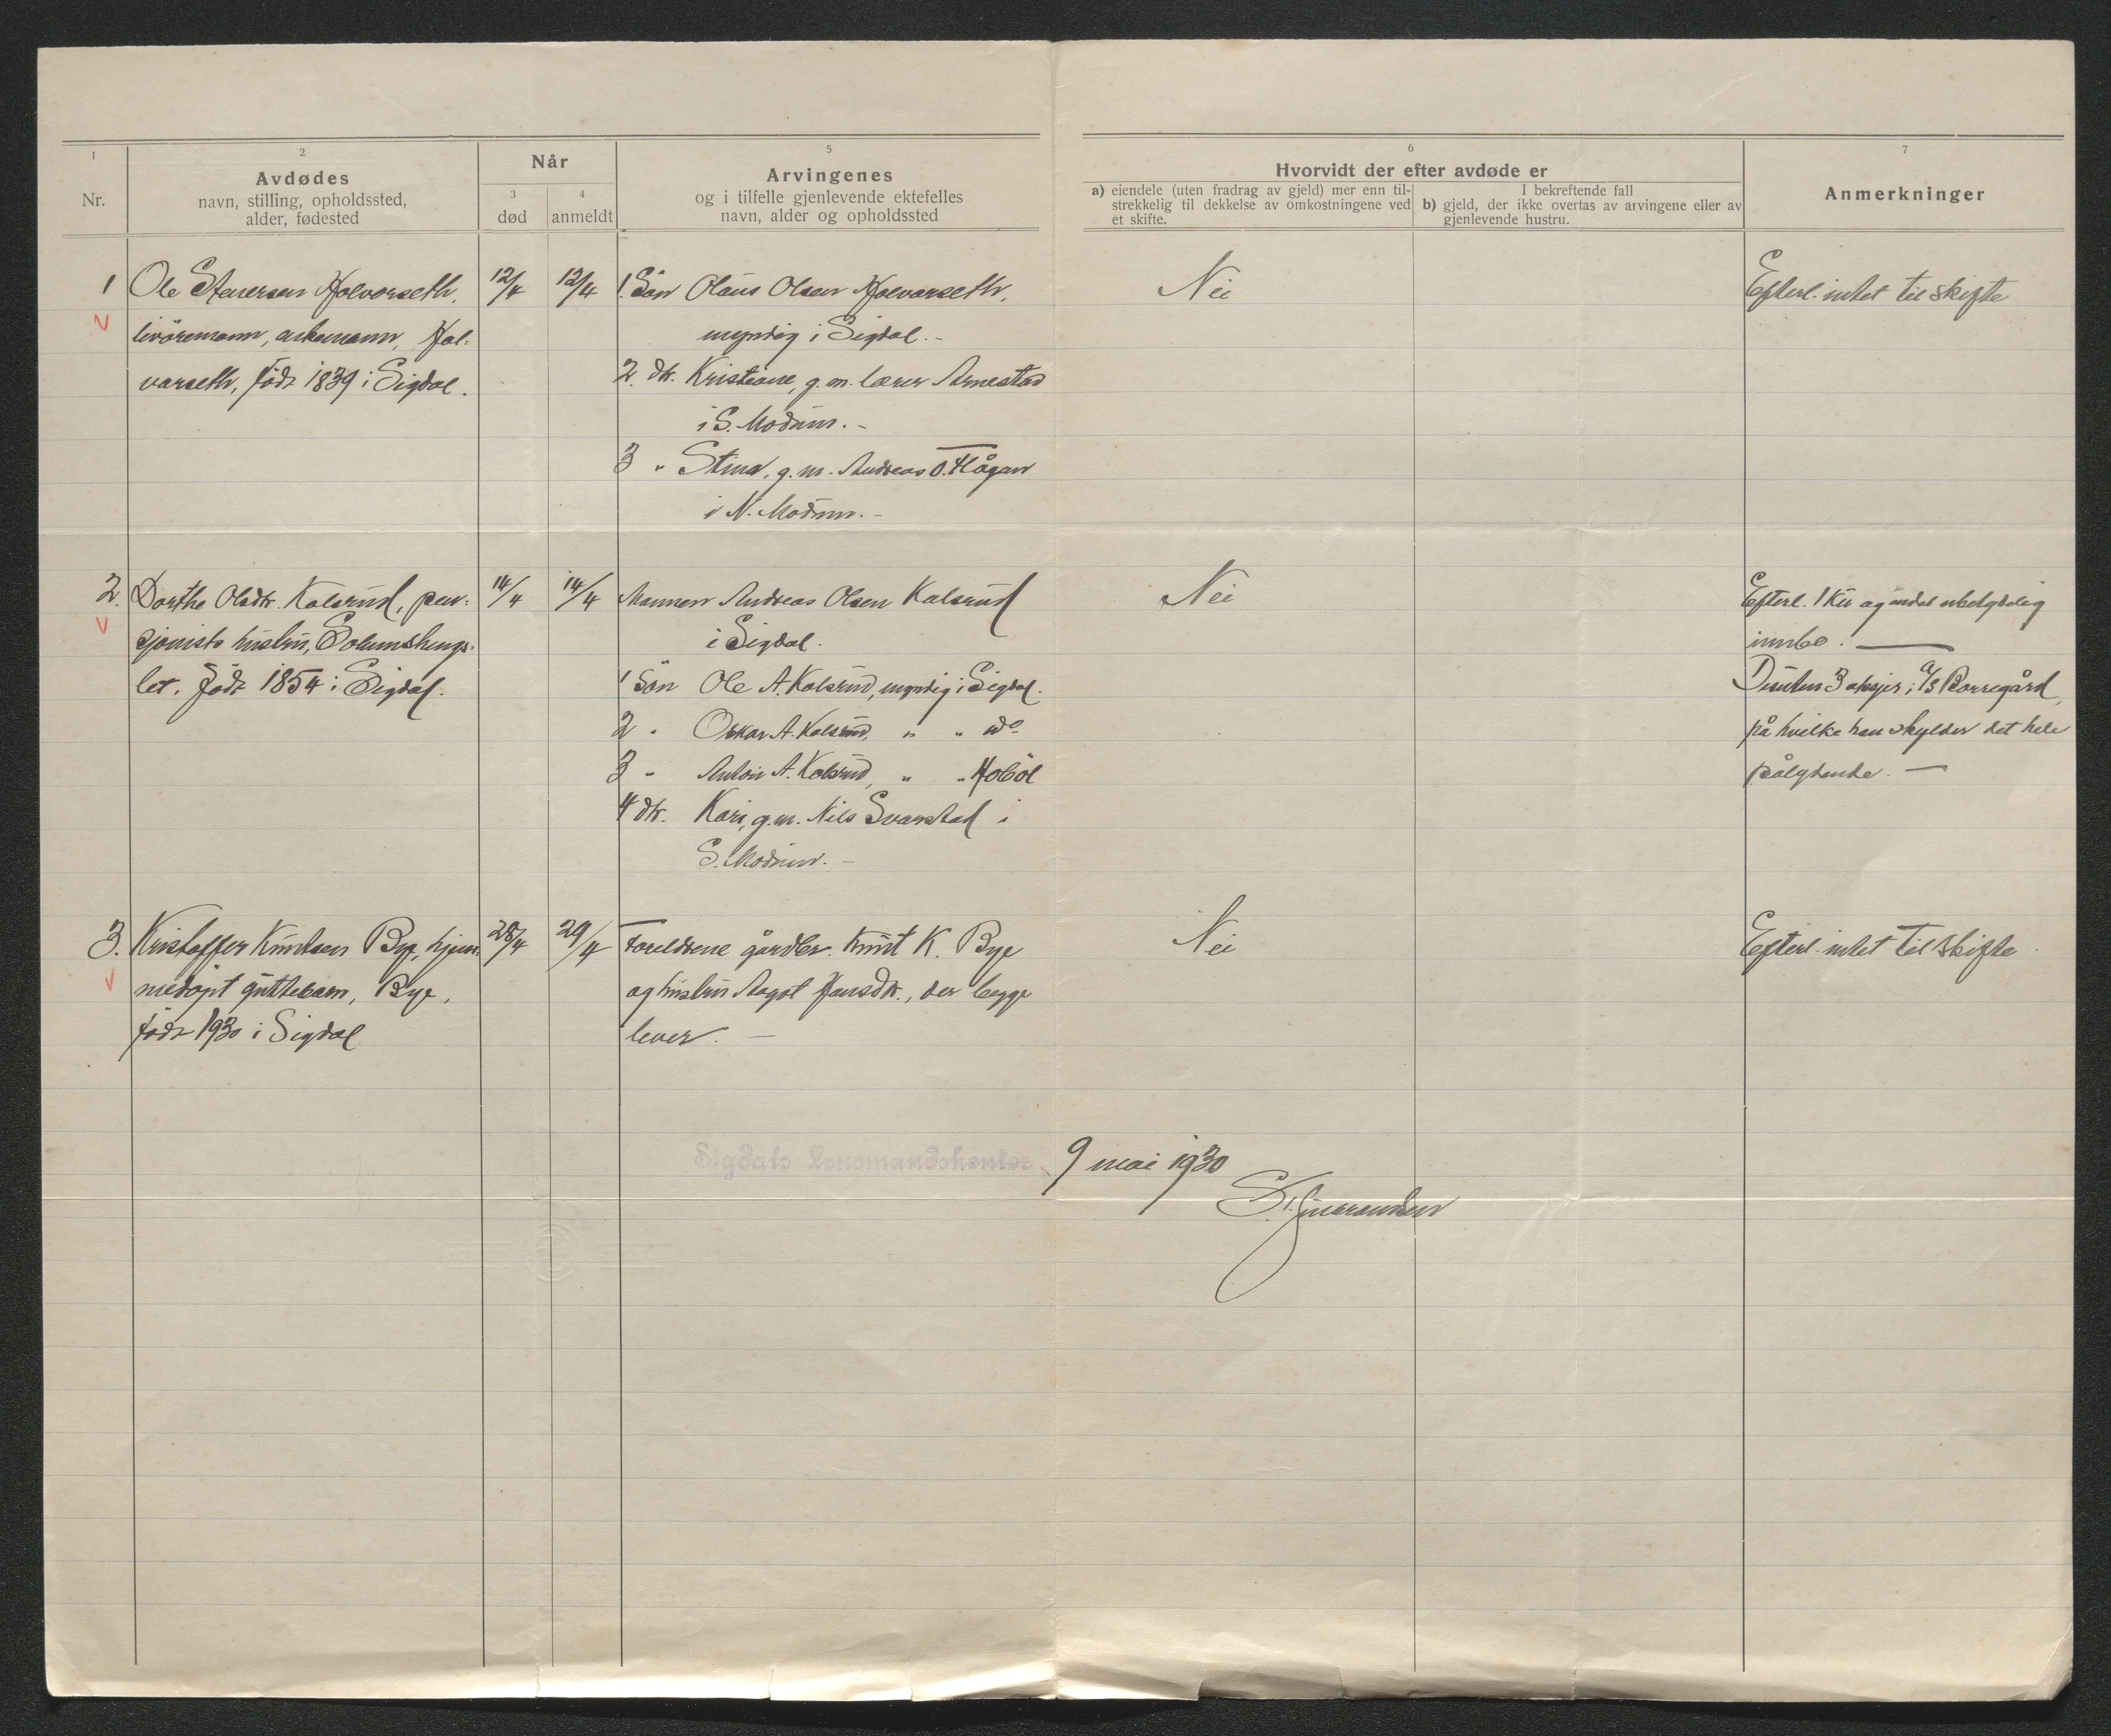 1
Nr.
2
Avdødes
navn, stilling, opholdssted,
alder, fødested
Når
3
død
4
anmeldt
5
Arvingenes
og i tilfelle gjenlevende ektefelles
navn, alder og opholdssted
6
Hvorvidt der efter avdøde er
a) eiendele (uten fradrag av gjeld) mer enn til-
strekkelig til dekkelse av omkostningene ved
et skifte.
I bekreftende fall
b) gjeld, der ikke overtas av arvingene eller av
gjenlevende hustru.
7
Anmerkninger
1
Ole Stenersen Holvorseth,
livöremann, enkemann, Hol-
varseth, född 1839 i Sigdal.
12/4
12/4
1. Sön Olaus Olsen Holvorseth,
myndig i Sigdal. -
2. dtr. Kristiane, g. m. lærer Arnestad
i S. Modum. -
3 " Stina, g. m. Andreas O. Hågan
i N. Modum. -
Nei
Efterl. intet til skifte
2.
Dorthe Olsdtr. Kolsrud, pen-
sjonists hustru, Solumshengs-
let. Född 1854 i Sigdal.
14/4
14/4
Mannen Andreas Olsen Kolsrud
i Sigdal.
1 Sön Ole A. Kolsrud, myndig i Sigdal.
2 " Oskar A. Kolsrud, " " do
3 " Anton A. Kolsrud, " " Hobøl
4 dtr. Kari, g. m. Nils Svarstad i
S. Modum. -
Nei
Efterl. 1 ku og endel ubetydelig
innbo. —
Desuten 3 aksjer i A/S Borregård,
på hvilke han skylder det hele
pålydende. —
3.
Kristoffer Knutsen Bye, hjem-
medöpt guttebarn, Bye,
född 1930 i Sigdal
28/4
29/4
Foreldrene gårdbr. Knut K. Bye
og hustru Aagot Hansdtr., der begge
lever. —
Nei
Efterl. intet til skifte
Sigdals Lensmandskontor
9 mai 1930